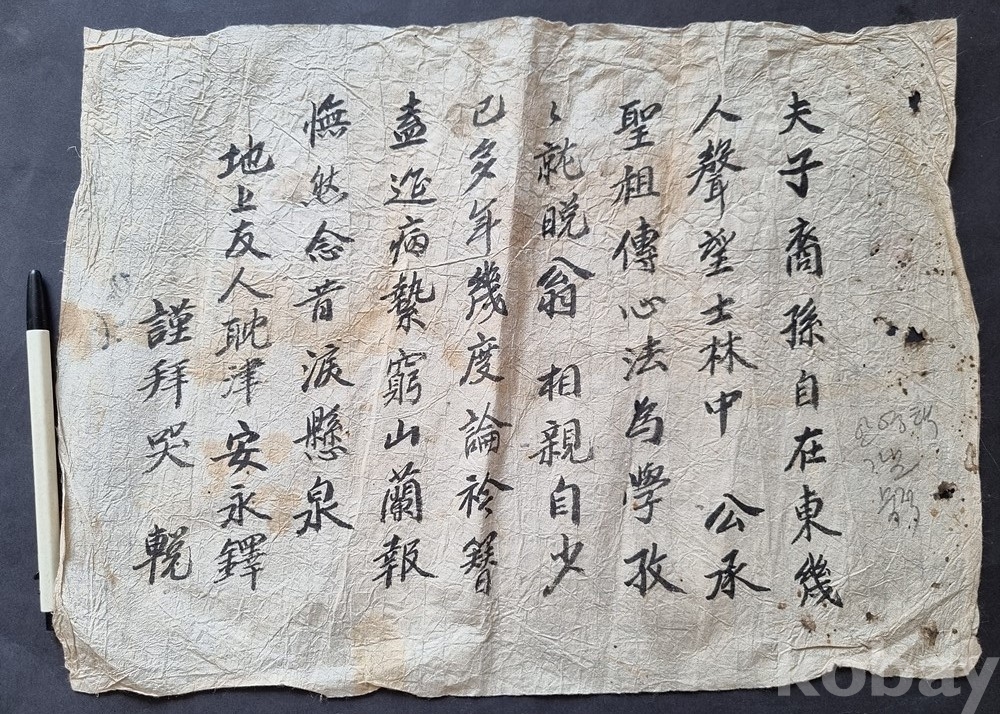 夫子裔孫自在東幾
人聲望士林中 公承
聖祖傳心法為學孜
〻就晩翁 相親自少
已多年幾度論衿簪
盍近病縶窮山蘭報
憮然念昔淚懸泉
地上友人耽津安永鐸
謹拜哭 輓
안영탁
kobay